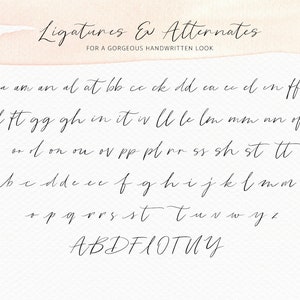 Ligatures & Alternates
FOR A GORGEOUS HANDWRITTEN LOOK
a am an al at bb cc ck dd ea ee el en ff
ft gg gh in it iv ll le lm mm nn of
ol on ou ov pp pl rr ss sh st tt
b c d d e e f g h i j k l m m
o p q r r s t t u v w y z
ABDFIOTUY